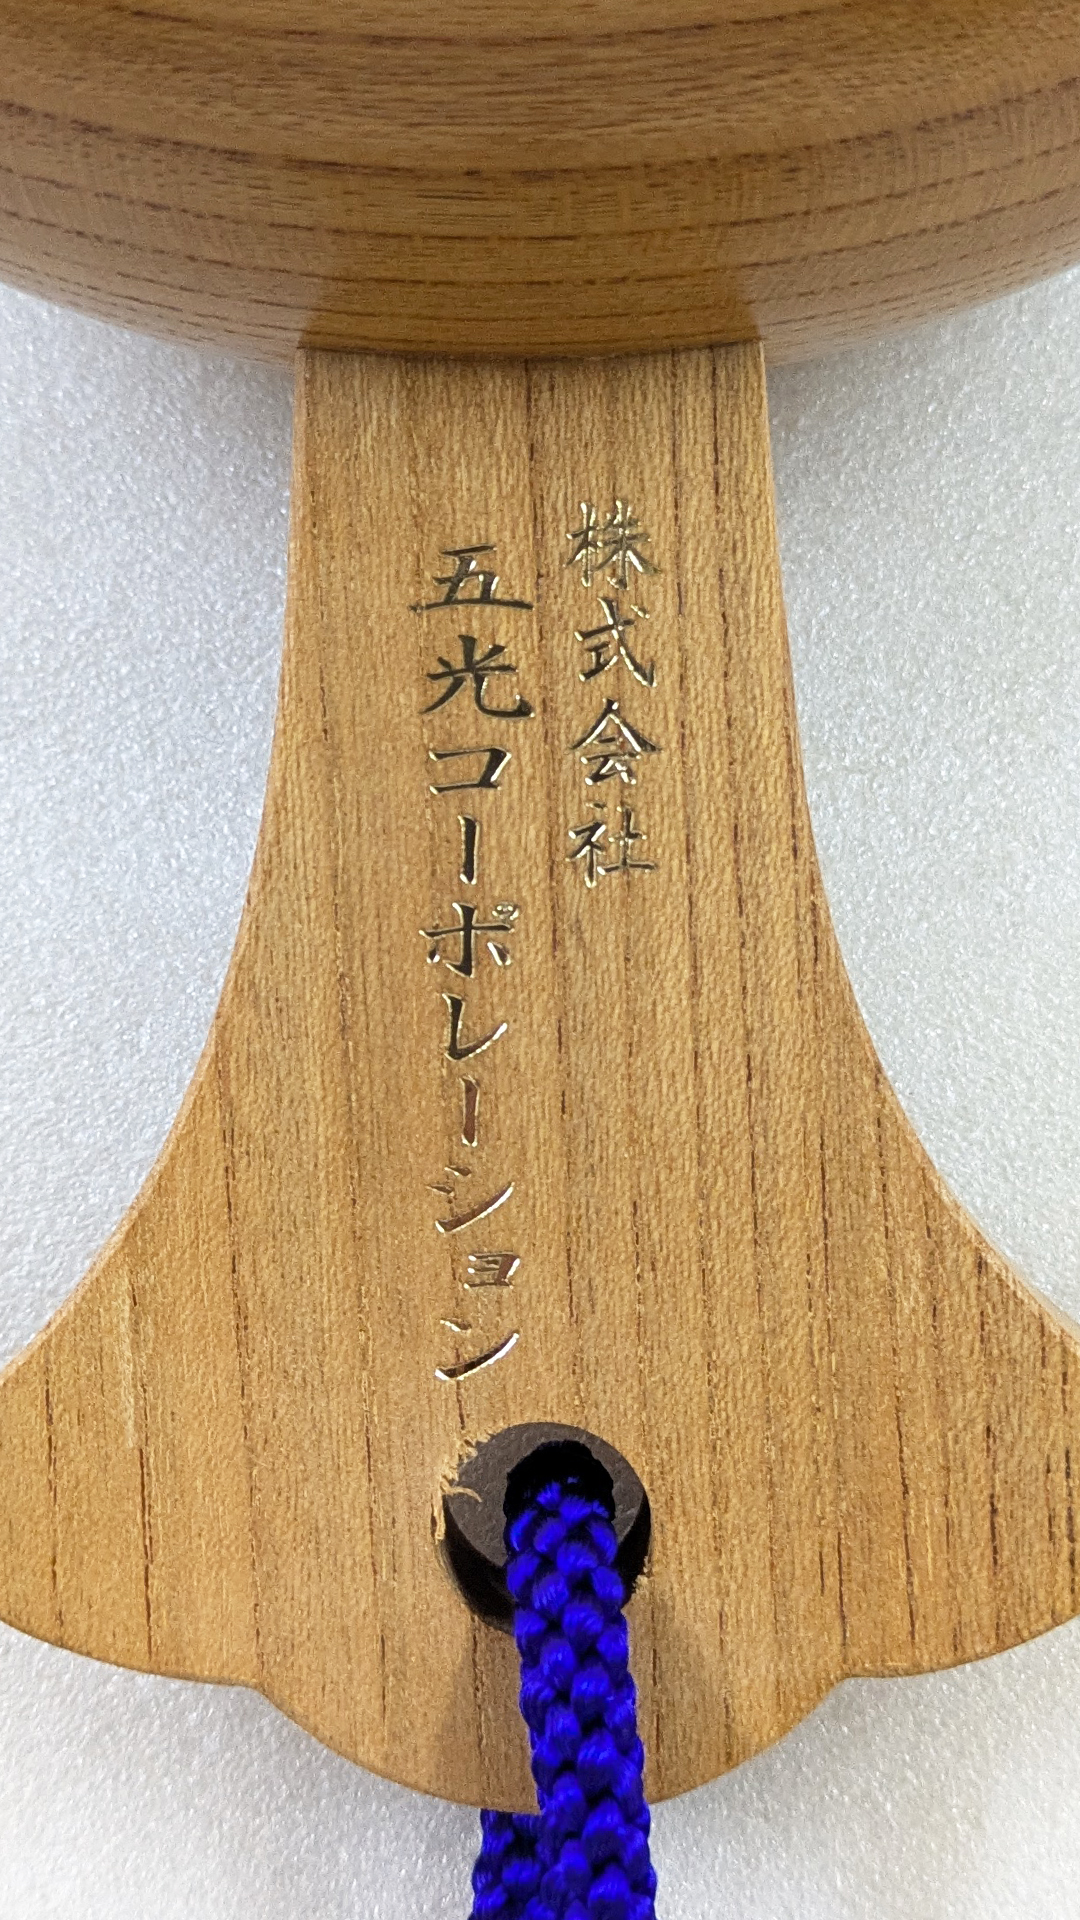 株式会社
五光コーポレーション